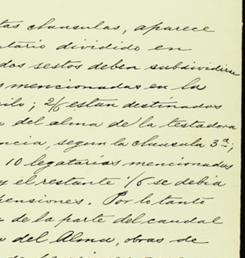 tas clausulas, aparece
ntario dividido en
dos sestos deben subdividirse
s mencionadas en la
ilo; 2/6 estan destinados
n del alma de la testadora
ncia, segun la clausula 3ª;
10 legatarios mencionados
y el restante 1/6 se debia
ensiones. Por lo tanto
n de la parte del caudal
a del Alma, obras de